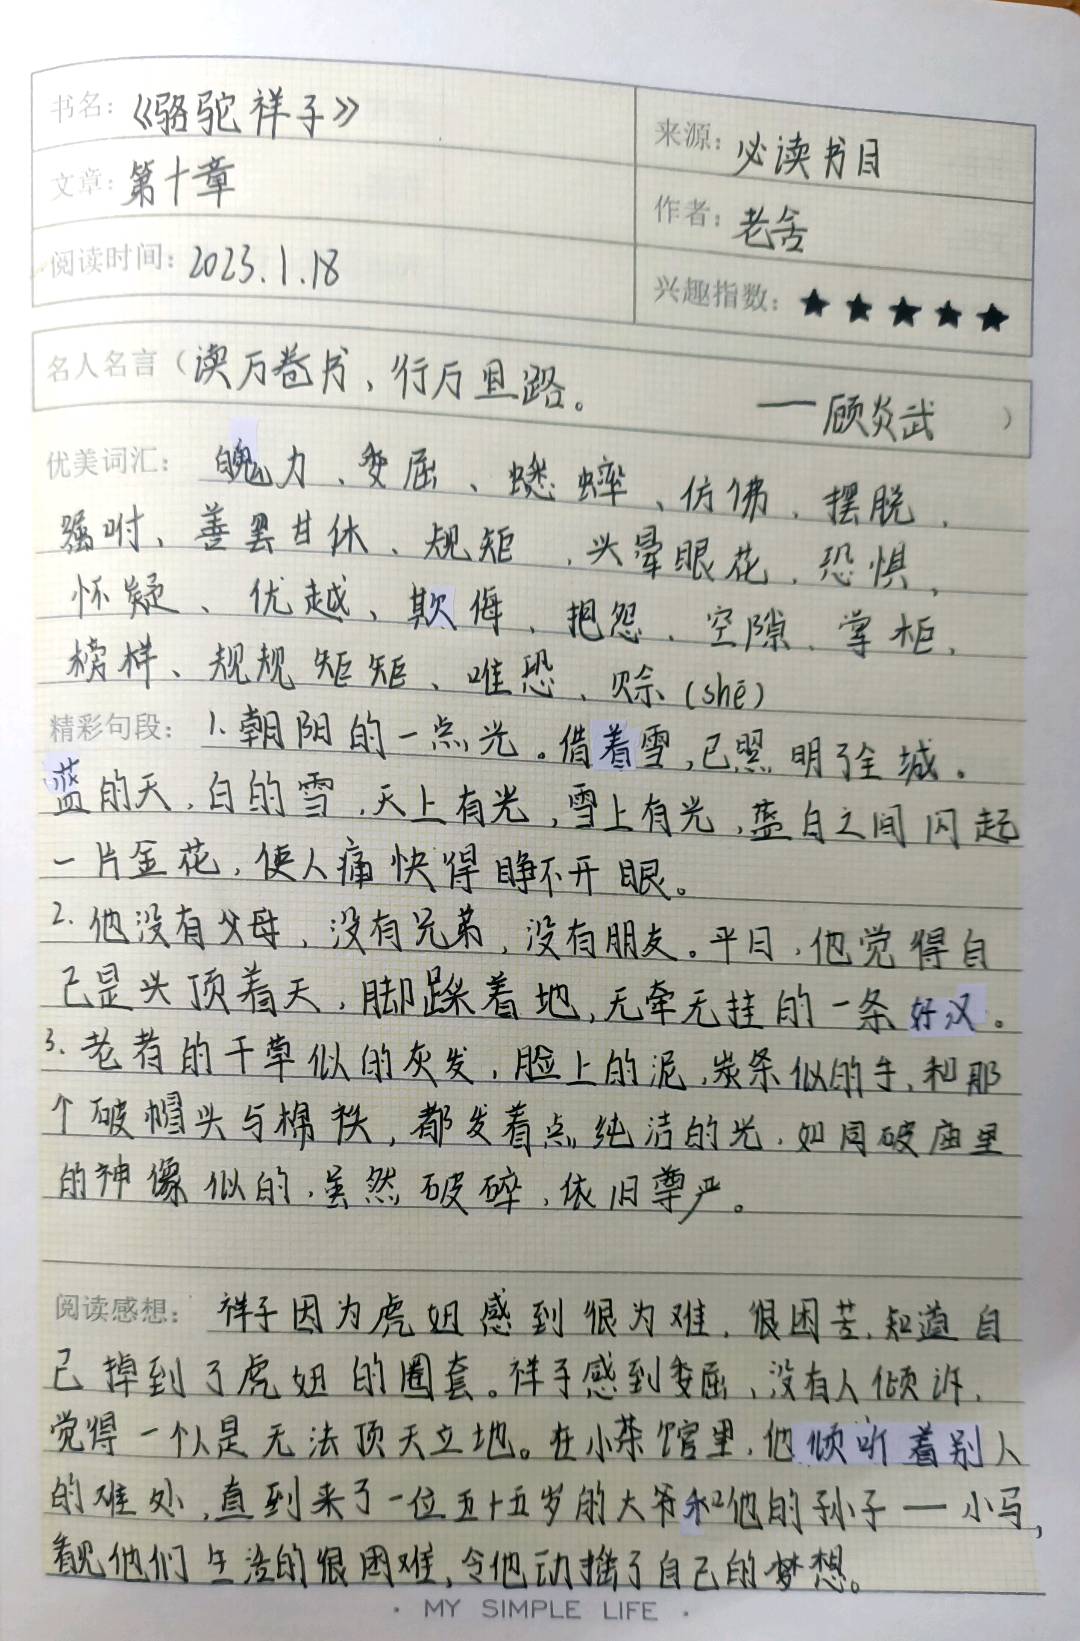 书名：《骆驼祥子》
来源：必读书目
文章：第十章
作者：老舍
阅读时间：2023.1.18
兴趣指数：★★★★★
名人名言（读万卷书、行万里路。
——顾炎武）
优美词汇：魄力、委屈、蟋蟀、仿佛、摆脱、
嘱咐、善罢甘休、规矩、头晕眼花、恐惧、
怀疑、优越、欺侮、抱怨、空隙、掌柜、
榜样、规规矩矩、唯恐、赊(shē)
精彩句段：1.朝阳的一点光。借着雪,已照明了全城。
蓝的天,白的雪,天上有光,雪上有光,蓝白之间闪起
一片金花,使人痛快得睁不开眼。
2.他没有父母,没有兄弟,没有朋友。平日,他觉得自
己是头顶着天,脚踩着地,无牵无挂的一条好汉。
3.老者的干草似的灰发,脸上的泥,炭条似的手,和那
个破帽头与棉袄,都发着点纯洁的光,如同破庙里
的神像似的,虽然破碎,依旧尊严。
阅读感想：祥子因为虎妞感到很为难,很困苦,知道自
己掉到了虎妞的圈套。祥子感到委屈,没有人倾诉,
觉得一个人是无法顶天立地。在小茶馆里,他倾听着别人
的难处,直到来了一位五十五岁的大爷和他的孙子——小马,
看见他们生活的很困难,令他动摇了自己的梦想。
· MY SIMPLE LIFE ·